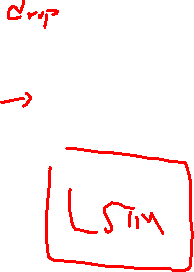 drop
LSTM